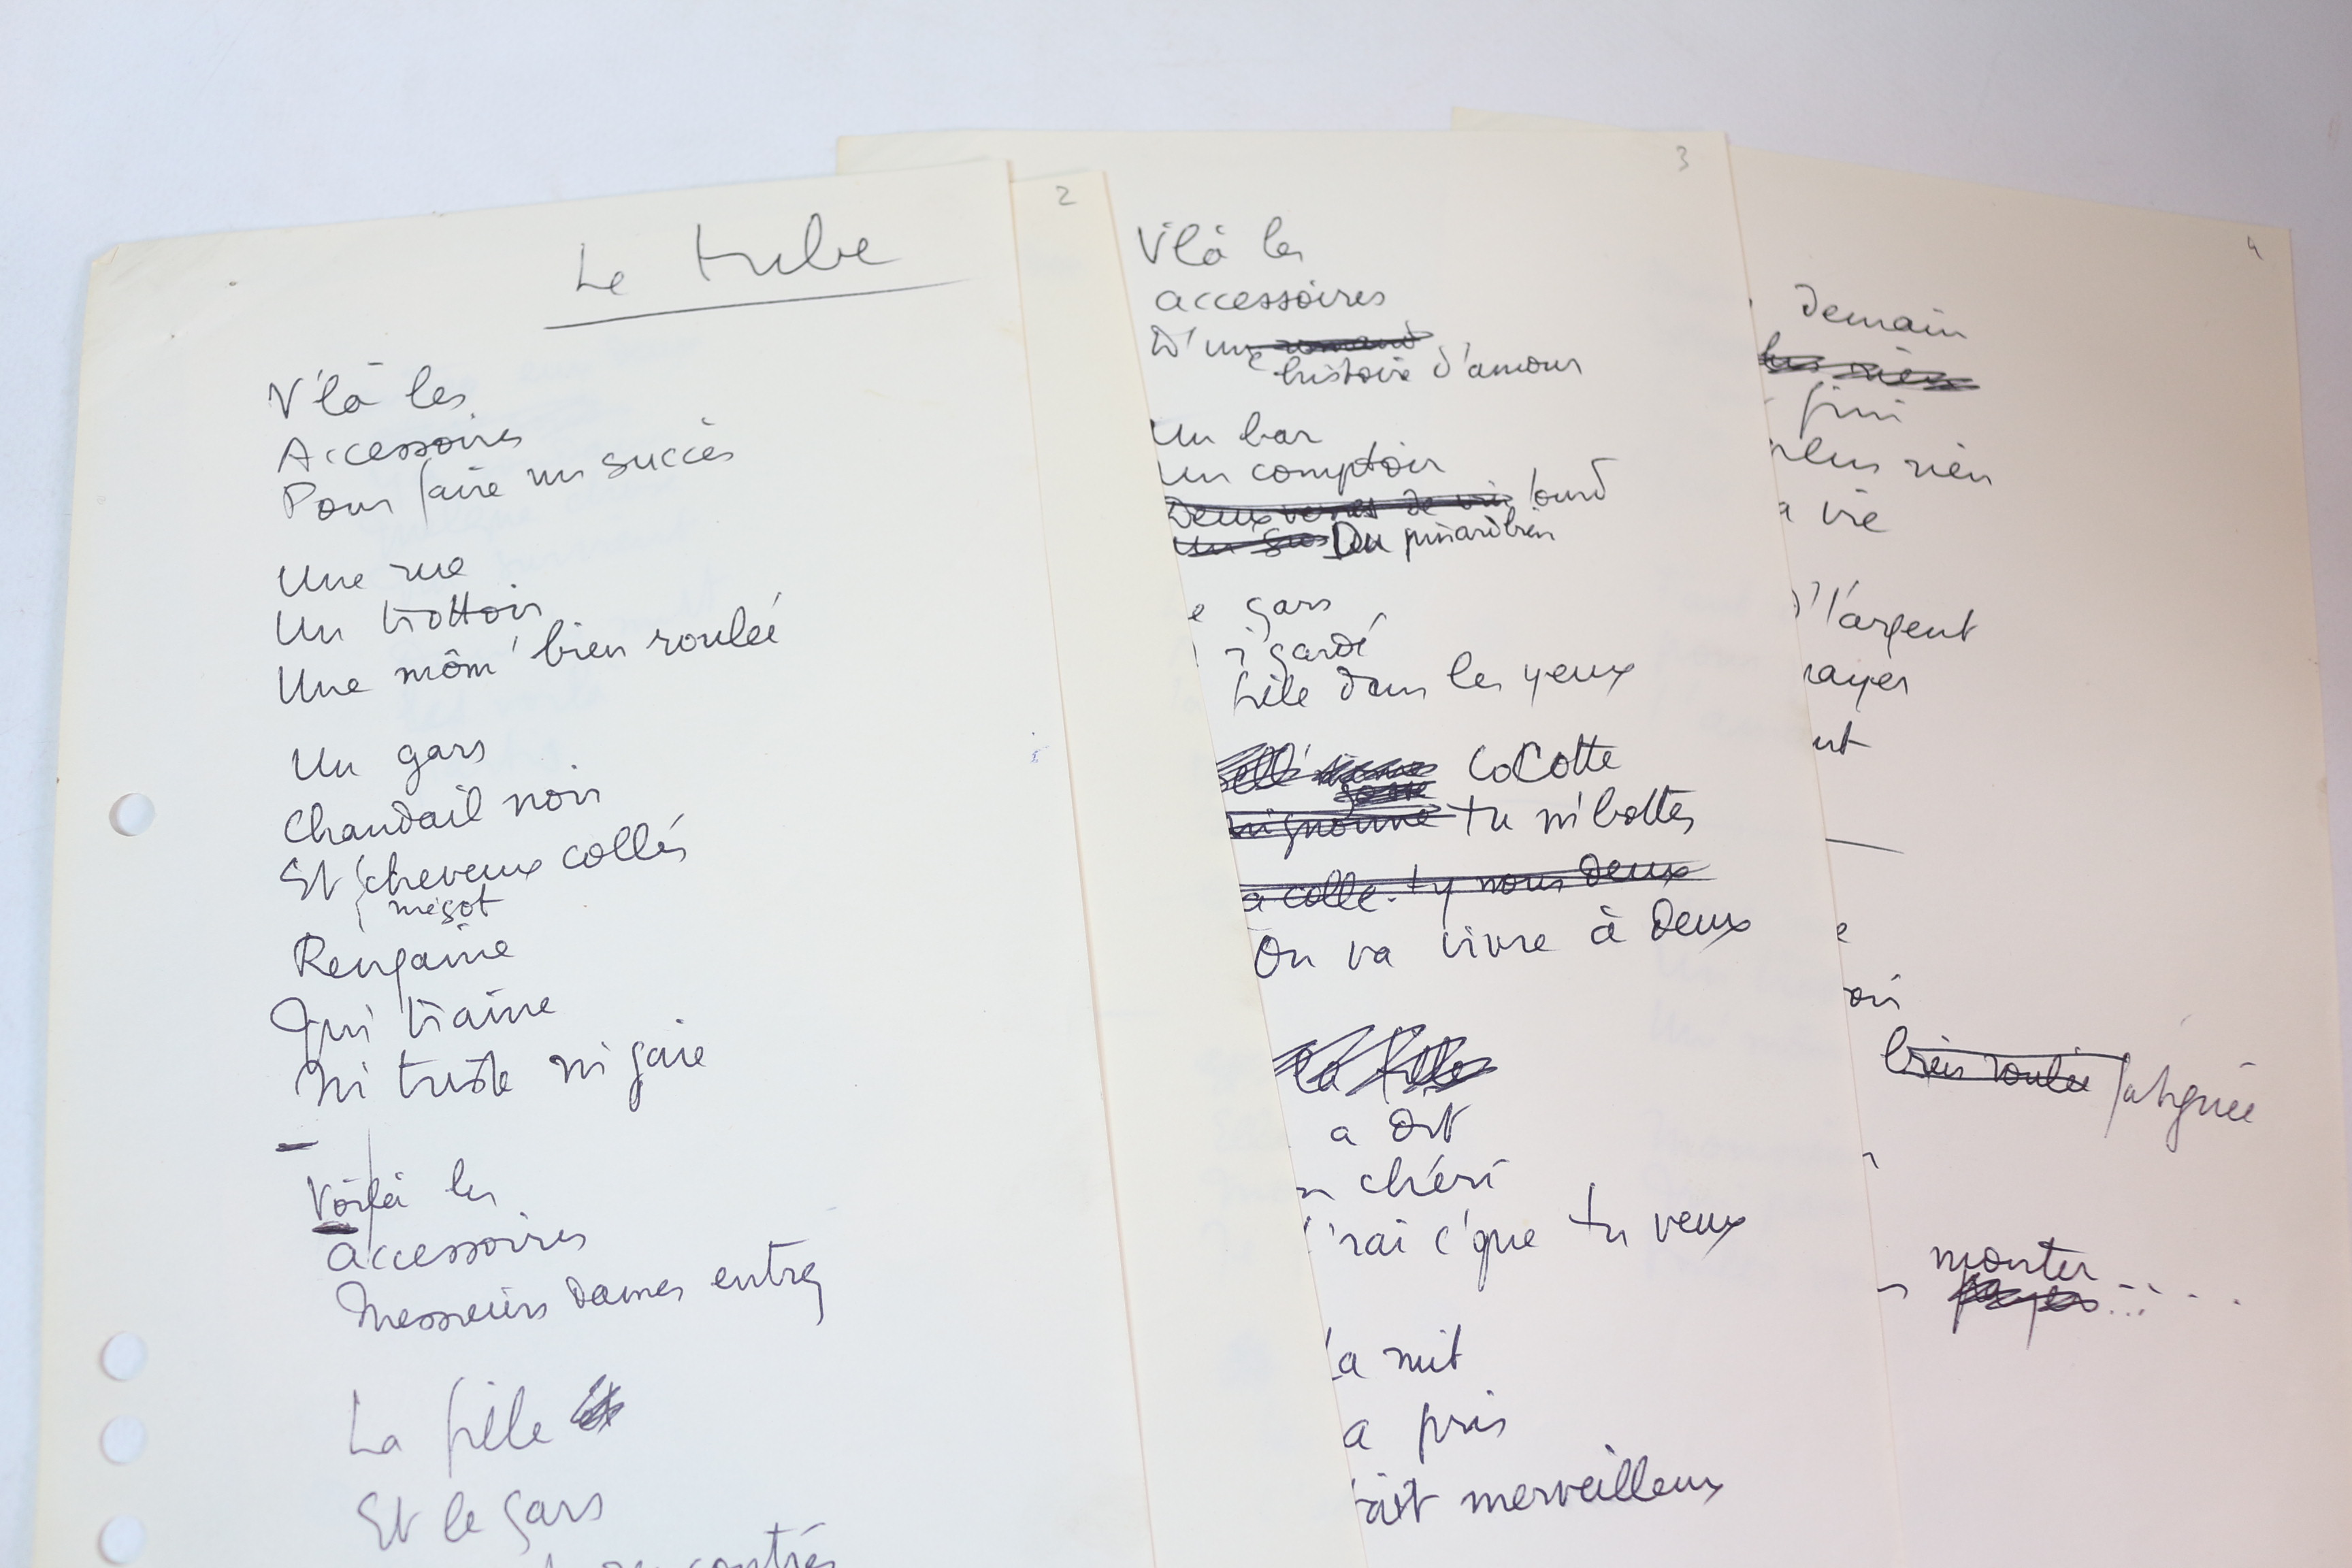 Le tube
V'là les
Accessoires
Pour faire un succès
Une rue
Un trottoir
Une môm' bien roulée
Un gars
Chandail noir
Et cheveux collés
mégot
Rengaine
Qui traîne
Ni triste ni gaie
Voilà les
accessoires
Messieurs dames entrez
La fille
Et le gars
2
3
V'là les
accessoires
D'une
histoire d'amour
Un bar
Un comptoir
Deux verres de vin lourd
Du pinard bien
gars
r'gardé
fille dans les yeux
Cocotte
mignonne tu m'bottes
a colle. ty nous deux
On va vivre à deux
La fille
a dit
chéri
'rai c'que tu veux
La nuit
a pris
ait merveilleux
4
Demain
fini
plus rien
a vie
l'argent
payer
e
oir
bien roulée fatiguée
monter